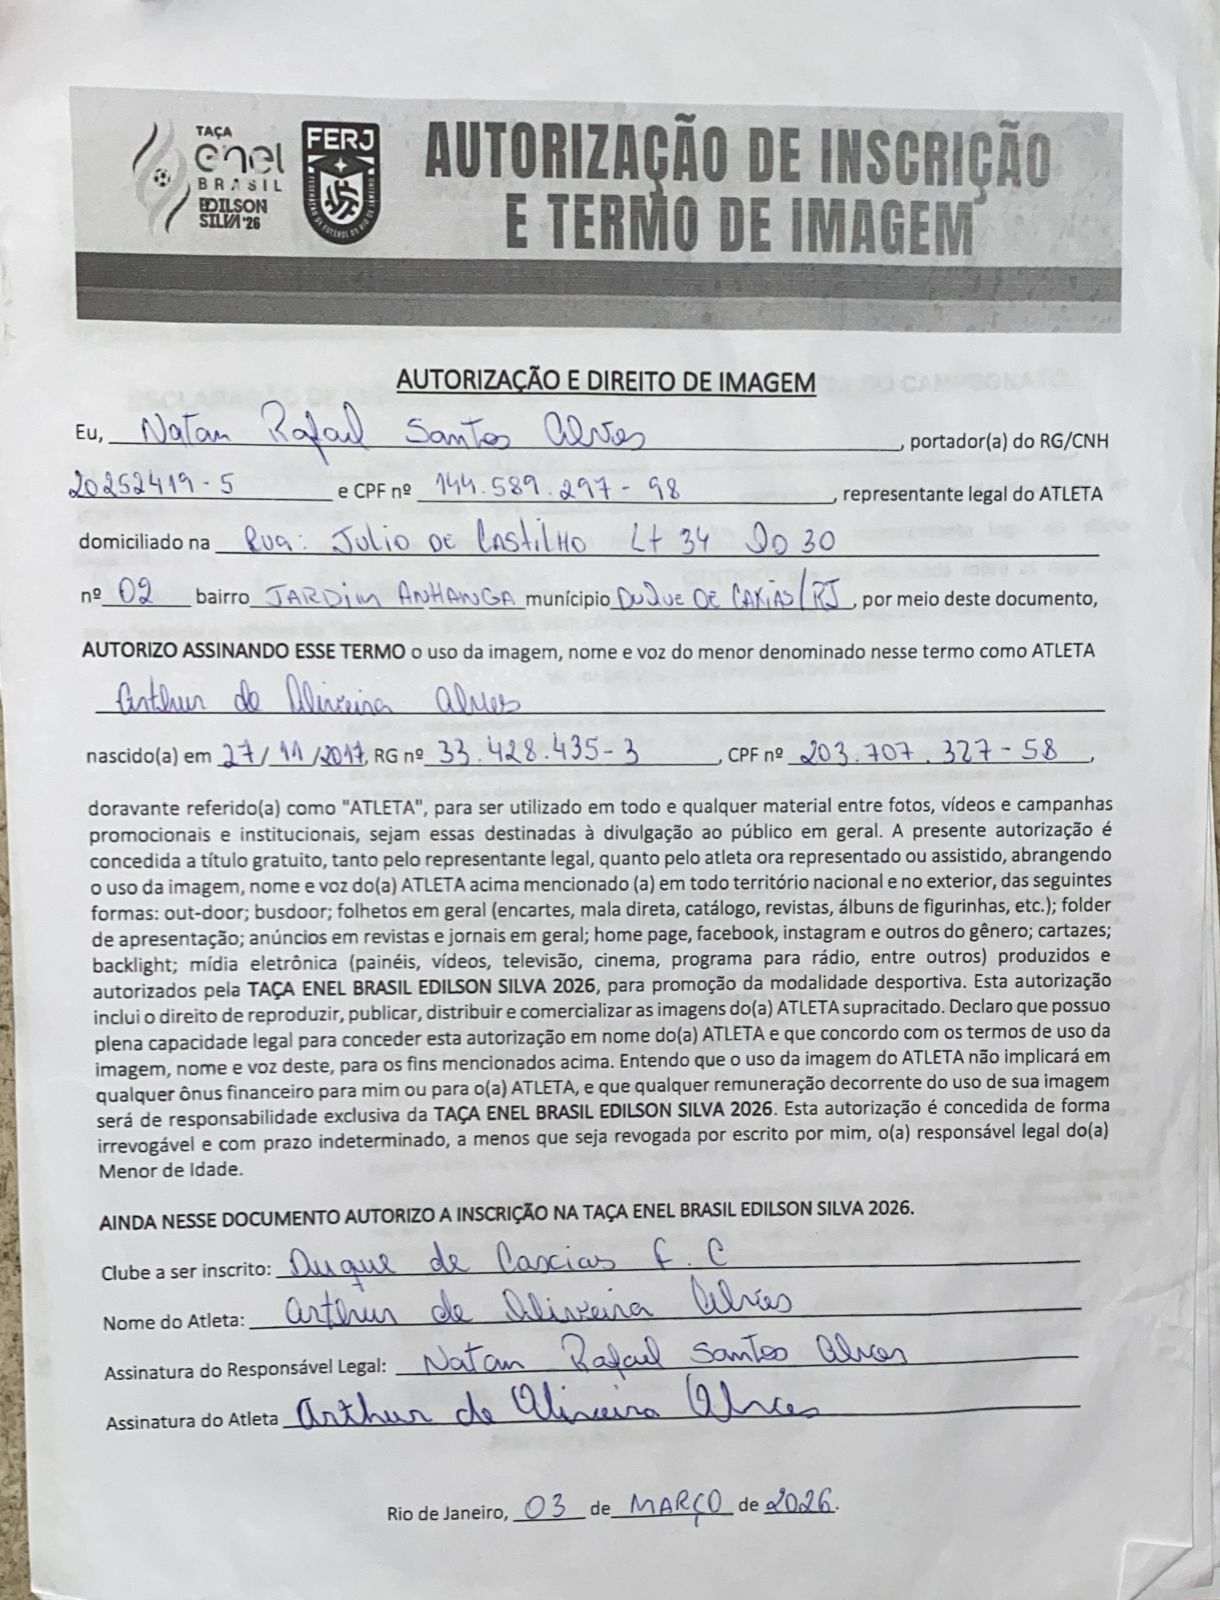 TAÇA
enel
BRASIL
EDILSON
SILVA'26
FERJ
FEDERAÇÃO DE FUTEBOL DO RIO DE JANEIRO
AUTORIZAÇÃO DE INSCRIÇÃO
E TERMO DE IMAGEM
AUTORIZAÇÃO E DIREITO DE IMAGEM
Eu, Natan Rafael Santos Alves, portador(a) do RG/CNH
20252419-5 e CPF nº 144.589.297-98, representante legal do ATLETA
domiciliado na Rua: Julio de Castilho Lt 34 QD 30
nº 02 bairro JARDIM ANHANGA munícipio DUQUE DE CAXIAS/RJ, por meio deste documento,
AUTORIZO ASSINANDO ESSE TERMO o uso da imagem, nome e voz do menor denominado nesse termo como ATLETA
Arthur de Oliveira Alves
nascido(a) em 27/11/2017, RG nº 33.428.435-3, CPF nº 203.707.327-58,
doravante referido(a) como "ATLETA", para ser utilizado em todo e qualquer material entre fotos, vídeos e campanhas
promocionais e institucionais, sejam essas destinadas à divulgação ao público em geral. A presente autorização é
concedida a título gratuito, tanto pelo representante legal, quanto pelo atleta ora representado ou assistido, abrangendo
o uso da imagem, nome e voz do(a) ATLETA acima mencionado (a) em todo território nacional e no exterior, das seguintes
formas: out-door; busdoor; folhetos em geral (encartes, mala direta, catálogo, revistas, álbuns de figurinhas, etc.); folder
de apresentação; anúncios em revistas e jornais em geral; home page, facebook, instagram e outros do gênero; cartazes;
backlight; mídia eletrônica (painéis, vídeos, televisão, cinema, programa para rádio, entre outros) produzidos e
autorizados pela TAÇA ENEL BRASIL EDILSON SILVA 2026, para promoção da modalidade desportiva. Esta autorização
inclui o direito de reproduzir, publicar, distribuir e comercializar as imagens do(a) ATLETA supracitado. Declaro que possuo
plena capacidade legal para conceder esta autorização em nome do(a) ATLETA e que concordo com os termos de uso da
imagem, nome e voz deste, para os fins mencionados acima. Entendo que o uso da imagem do ATLETA não implicará em
qualquer ônus financeiro para mim ou para o(a) ATLETA, e que qualquer remuneração decorrente do uso de sua imagem
será de responsabilidade exclusiva da TAÇA ENEL BRASIL EDILSON SILVA 2026. Esta autorização é concedida de forma
irrevogável e com prazo indeterminado, a menos que seja revogada por escrito por mim, o(a) responsável legal do(a)
Menor de Idade.
AINDA NESSE DOCUMENTO AUTORIZO A INSCRIÇÃO NA TAÇA ENEL BRASIL EDILSON SILVA 2026.
Clube a ser inscrito: Duque de Caxias F.C
Nome do Atleta: Arthur de Oliveira Alves
Assinatura do Responsável Legal: Natan Rafael Santos Alves
Assinatura do Atleta Arthur de Oliveira Alves
Rio de Janeiro, 03 de MARÇO de 2026.